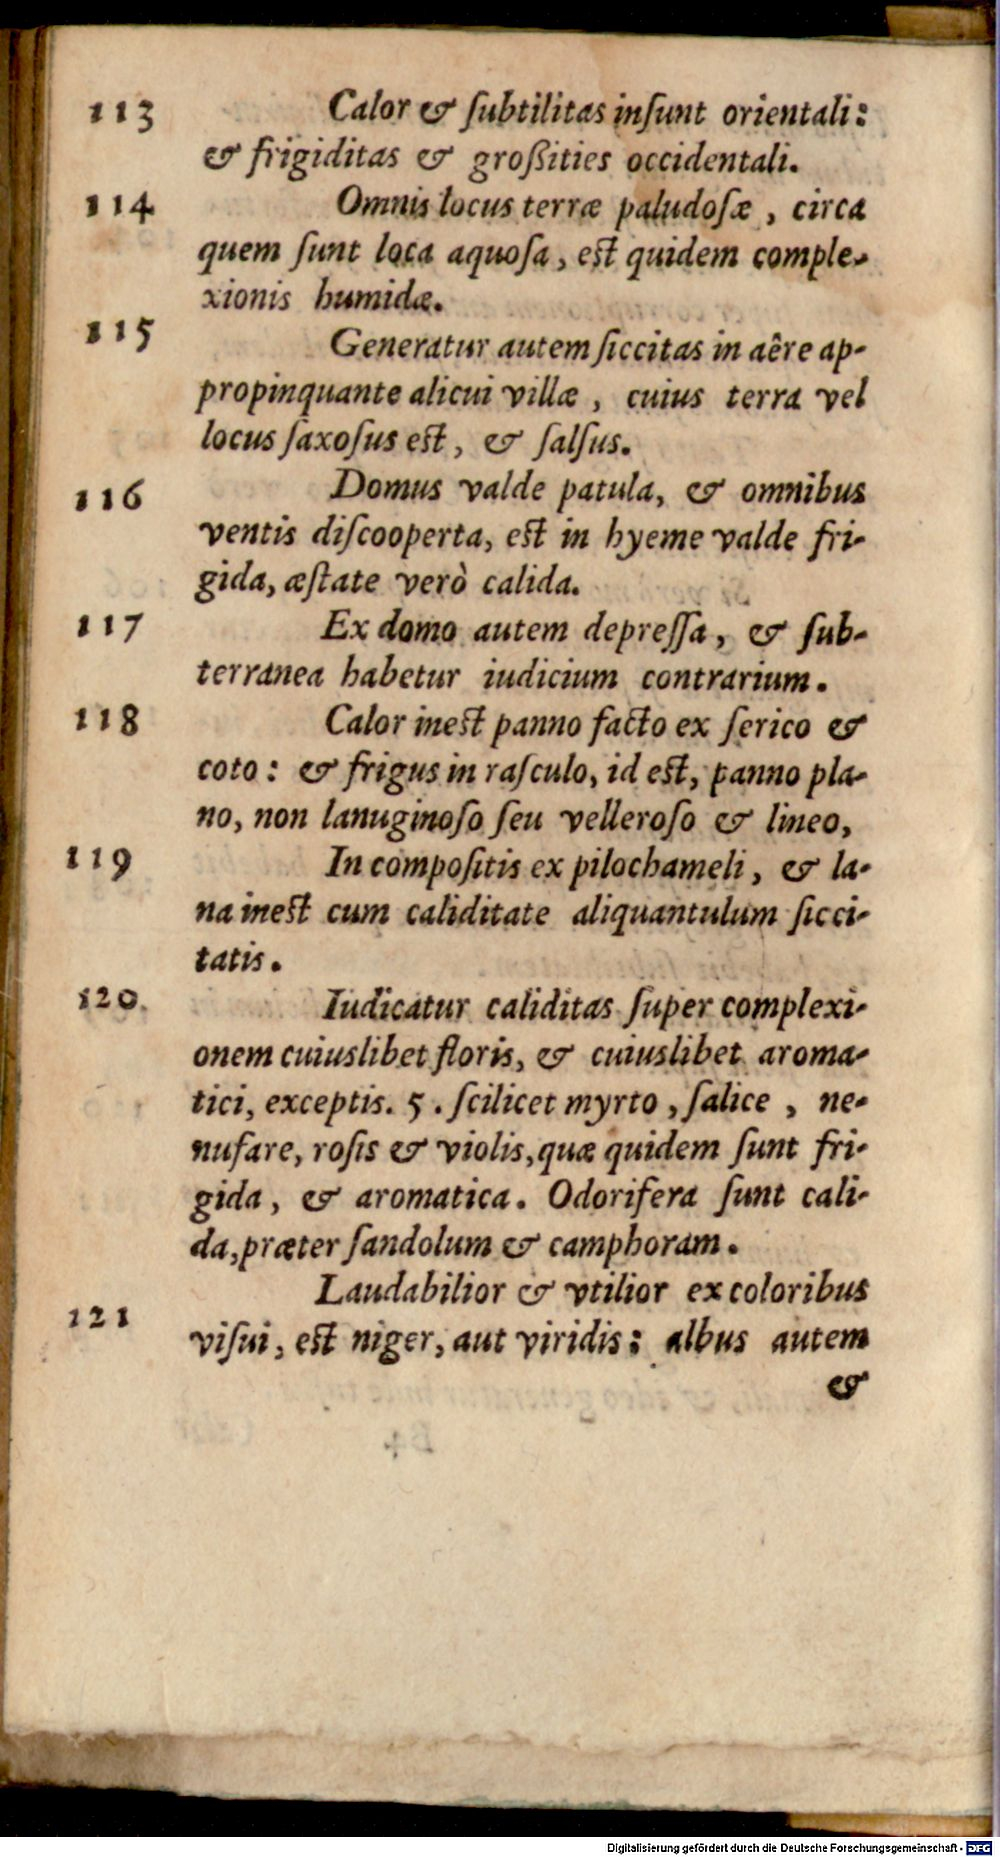 113 Calor & ſubtilitas inſunt orientali:
& frigiditas & großities occidentali.
114 Omnis locus terræ paludoſæ, circa
quem ſunt loca aquoſa, est quidem comple-
xionis humidæ.
115 Generatur autem ſiccitas in aêre ap-
propinquante alicui villæ, cuius terra vel
locus ſaxoſus est, & ſalſus.
116 Domus valde patula, & omnibus
ventis diſcooperta, est in hyeme valde fri-
gida, æſtate verò calida.
117 Ex domo autem depreſſa, & ſub-
terranea habetur iudicium contrarium.
118 Calor inest panno facto ex ſerico &
coto: & frigus in raſculo, id est, panno pla-
no, non lanuginoſo ſeu velleroſo & lineo,
119 In compoſitis ex pilochameli, & la-
na inest cum caliditate aliquantulum ſicci-
tatis.
120. Iudicatur caliditas ſuper complexi-
onem cuiuslibet floris, & cuiuslibet aroma-
tici, exceptis. 5. ſcilicet myrto, ſalice, ne-
nufare, roſis & violis, quæ quidem ſunt fri-
gida, & aromatica. Odorifera ſunt cali-
da, præter ſandolum & camphoram.
121 Laudabilior & vtilior ex coloribus
viſui, est niger, aut viridis: albus autem
&
Digitalisierung gefördert durch die Deutsche Forschungsgemeinschaft - DFG